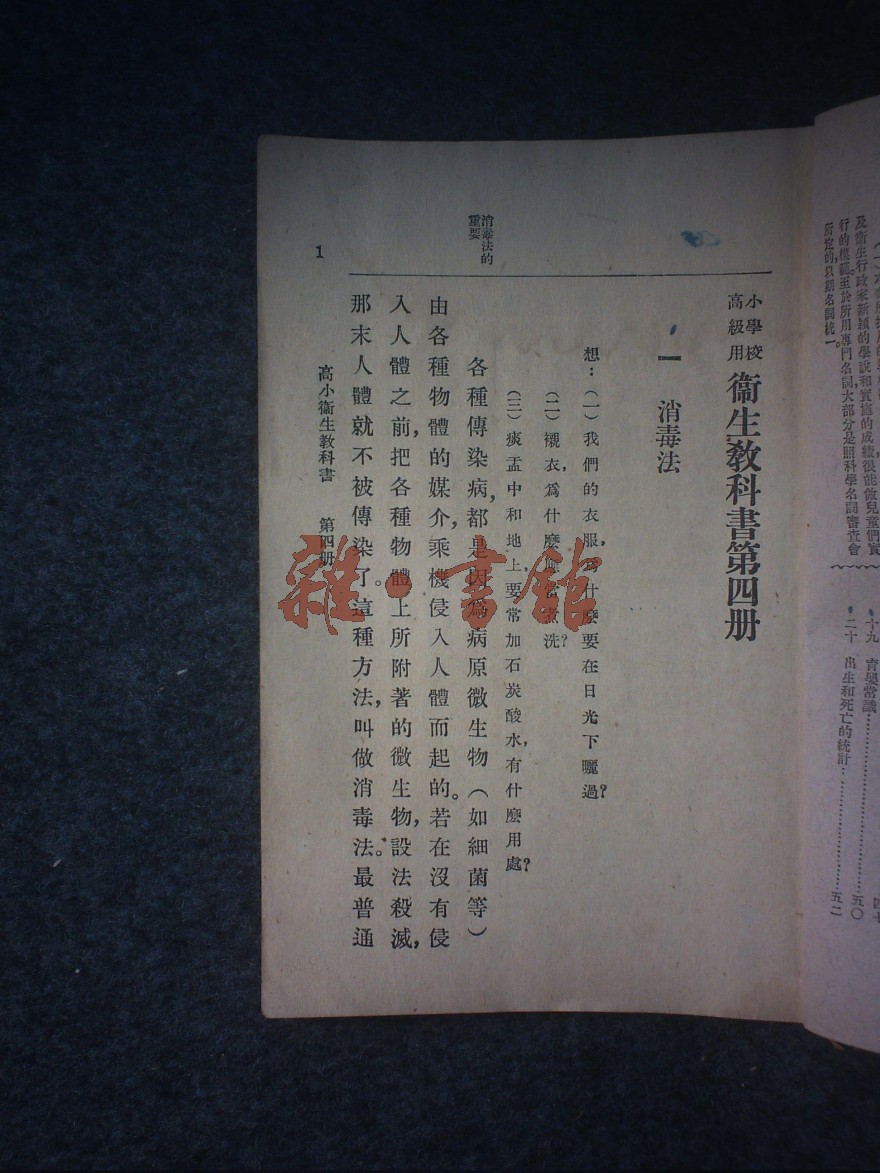 行的模範.至於所用專門名詞,大部分是照科學名詞審查會
所定的,以期名詞統一。
二十 出生和死亡的統計…………………五二
小學校
高級用
衞生敎科書第四册
一 消毒法
想:(一)我們的衣服,爲什麼要在日光下曬過?
(二)襯衣,爲什麼應當煮洗?
(三)痰盂中和地上,要常加石炭酸水,有什麼用處?
消毒法的
重要
各種傳染病,都是因爲病原微生物(如細菌等)
由各種物體的媒介,乘機侵入人體而起的。若在沒有侵
入人體之前,把各種物體上所附著的微生物,設法殺滅,
那末人體就不被傳染了。這種方法,叫做消毒法。最普通
高小衞生敎科書 第四册
1
雜·書館